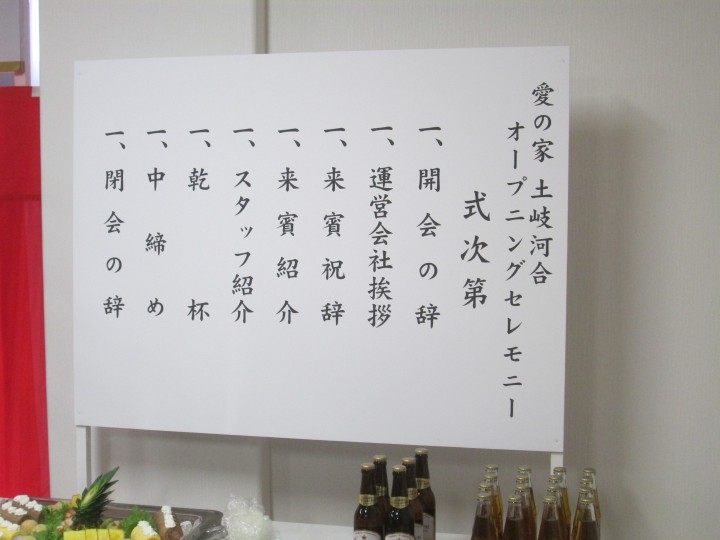 愛の家 土岐河合
オープニングセレモニー
式次第
一、開会の辞
一、運営会社挨拶
一、来賓祝辞
一、来賓紹介
一、スタッフ紹介
一、乾杯
一、中締め
一、閉会の辞